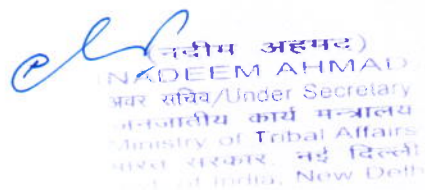 (नदीम अहमद)
NADEEM AHMAD
अवर सचिव/Under Secretary
जनजातीय कार्य मन्त्रालय
Ministry of Tribal Affairs
भारत सरकार, नई दिल्ली
of India, New Delh